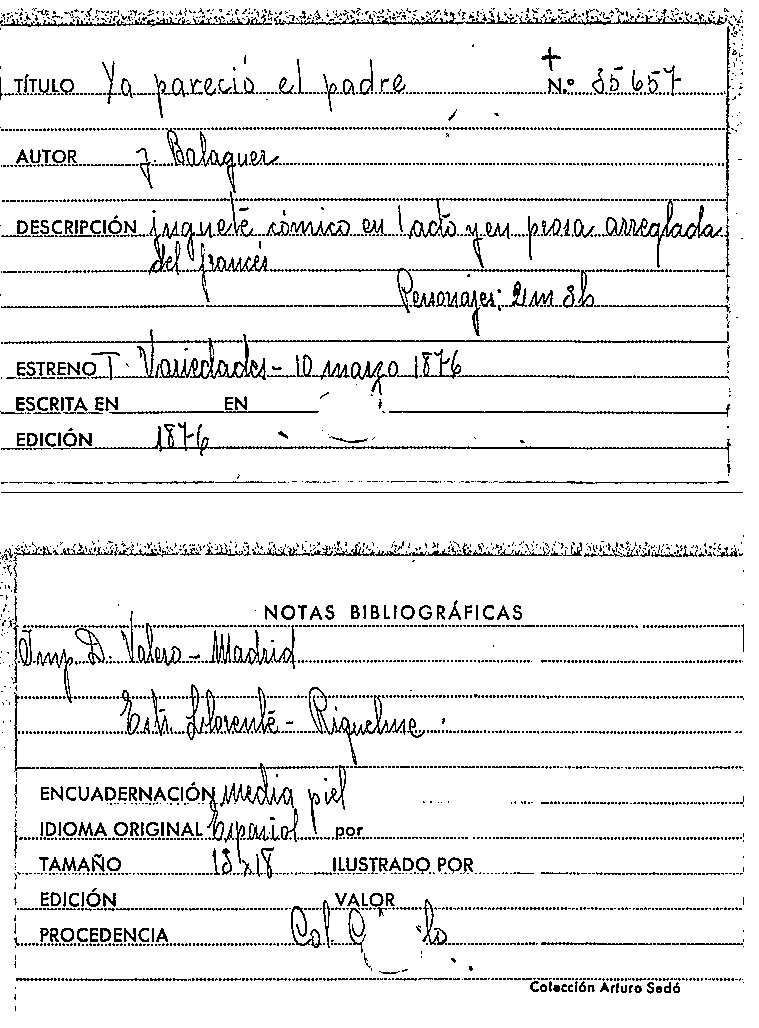 TÍTULO Ya pareció el padre N.º 35657
AUTOR J. Balaguer
DESCRIPCIÓN juguete cómico en 1 acto y en prosa arreglada
del francés
Personajes: 2m 3h
ESTRENO T. Variedades - 10 marzo 1876
ESCRITA EN EN
EDICIÓN 1876
NOTAS BIBLIOGRÁFICAS
Imp D. Valero - Madrid
Estr. Llorente - Riquelme
ENCUADERNACIÓN media piel
IDIOMA ORIGINAL Español por
TAMAÑO ILUSTRADO POR
EDICIÓN VALOR
PROCEDENCIA Col.
Colección Arturo Sedó